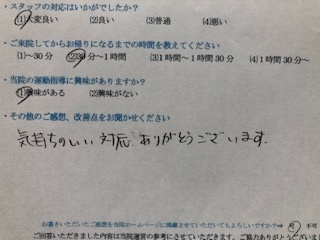 ・スタッフの対応はいかがでしたか?
(1)大変良い (2)良い (3)普通 (4)悪い
・ご来院してからお帰りになるまでの時間を教えてください
(1)～30分 (2)30分～1時間 (3)1時間～1時間30分 (4)1時間30分～
・当院の運動指導に興味がありますか?
(1)興味がある (2)興味がない
・その他のご感想、改善点をお聞かせください
気持ちのいい対応 ありがとうございます.
お書きいただいたご感想を当院ホームページに掲載させていただいてもよろしいですか?⇒ 可 不可
ご回答いただきました内容は当院運営の参考にさせていただきます。ご協力ありがとうござい